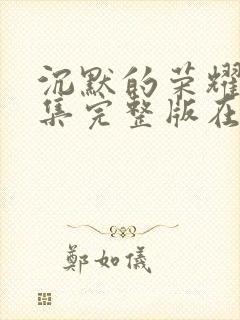 沉默的荣耀
集完整版在
鄭如儀